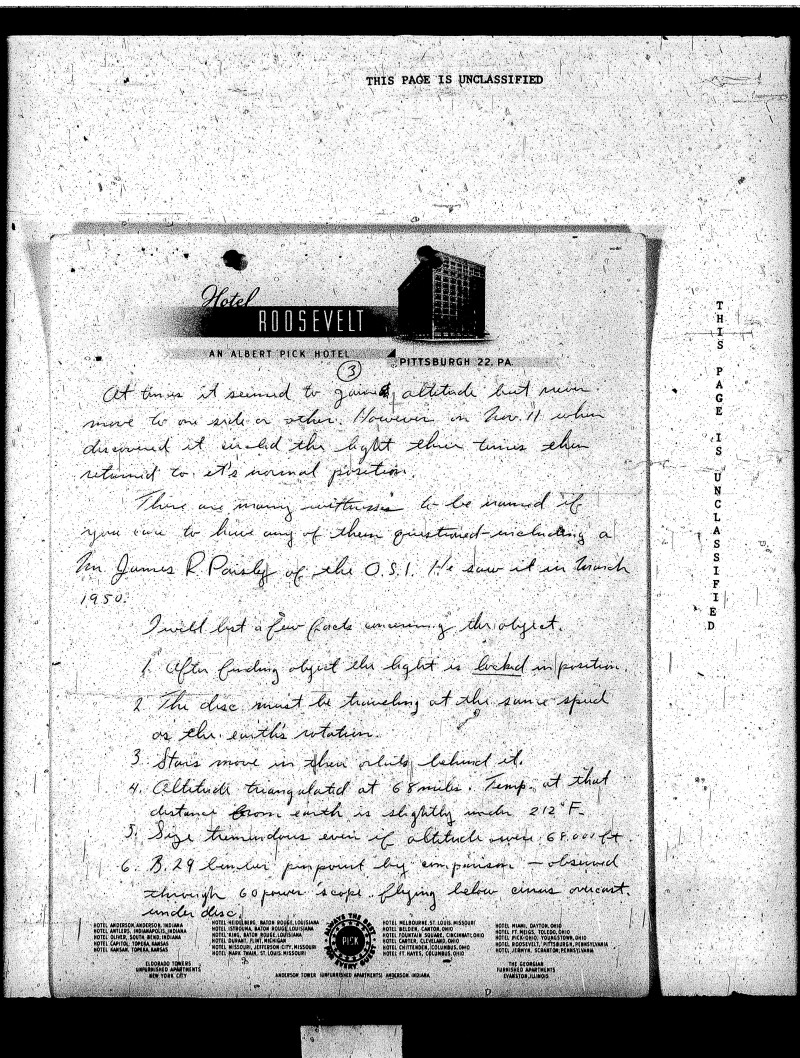 THIS PAGE IS UNCLASSIFIED
Hotel
ROOSEVELT
AN ALBERT PICK HOTEL
PITTSBURGH 22, PA.
3
At times it seemed to gain altitude but never
move to one side or other. However on Nov. 11 when
discovered it circled the light three times then
returned to it's normal position.
There are many witnesses to be named if
you care to have any of them questioned - including a
Mr. James R. of the O.S.I. He saw it in March
1950.
I will list a few facts concerning the object.
1. After finding object the light is locked in position
2. The disc must be traveling at the same speed
as the earth's rotation.
3. Stars move in their orbits behind it.
4. Altitude triangulated at 68 miles. Temp. at that
distance from earth is slightly under 212°F.
5. Size tremendous even if altitude were 68,000 ft.
6. B.29 pinpoint by comparison - observed
through 60 power scope. flying below cirrus overcast.
under disc.
HOTEL ANDERSON, ANDERSON, INDIANA
HOTEL ANTLERS, INDIANAPOLIS, INDIANA
HOTEL OLIVER, SOUTH BEND, INDIANA
HOTEL CAPITOL, TOPEKA, KANSAS
HOTEL KANSAN, TOPEKA, KANSAS
HOTEL HEIDELBERG, BATON ROUGE, LOUISIANA
HOTEL ISTROUMA, BATON ROUGE, LOUISIANA
HOTEL KING, BATON ROUGE, LOUISIANA
HOTEL DURANT, FLINT, MICHIGAN
HOTEL MISSOURI, JEFFERSON CITY, MISSOURI
HOTEL MARK TWAIN, ST. LOUIS, MISSOURI
ALWAYS THE BEST
PICK
FOR EVERY GUEST
HOTEL MELBOURNE, ST. LOUIS, MISSOURI
HOTEL BELDEN, CANTON, OHIO
HOTEL FOUNTAIN SQUARE, CINCINNATI, OHIO
HOTEL CARTER, CLEVELAND, OHIO
HOTEL CHITTENDEN, COLUMBUS, OHIO
HOTEL FT. HAYES, COLUMBUS, OHIO
HOTEL MIAMI, DAYTON, OHIO
HOTEL FT. MEIGS, TOLEDO, OHIO
HOTEL PICK-OHIO, YOUNGSTOWN, OHIO
HOTEL ROOSEVELT, PITTSBURGH, PENNSYLVANIA
HOTEL JERMYN, SCRANTON, PENNSYLVANIA
ELDORADO TOWERS
UNFURNISHED APARTMENTS
NEW YORK CITY
ANDERSON TOWER (UNFURNISHED APARTMENTS) ANDERSON, INDIANA
THE GEORGIAN
FURNISHED APARTMENTS
EVANSTON, ILLINOIS
THIS PAGE IS UNCLASSIFIED